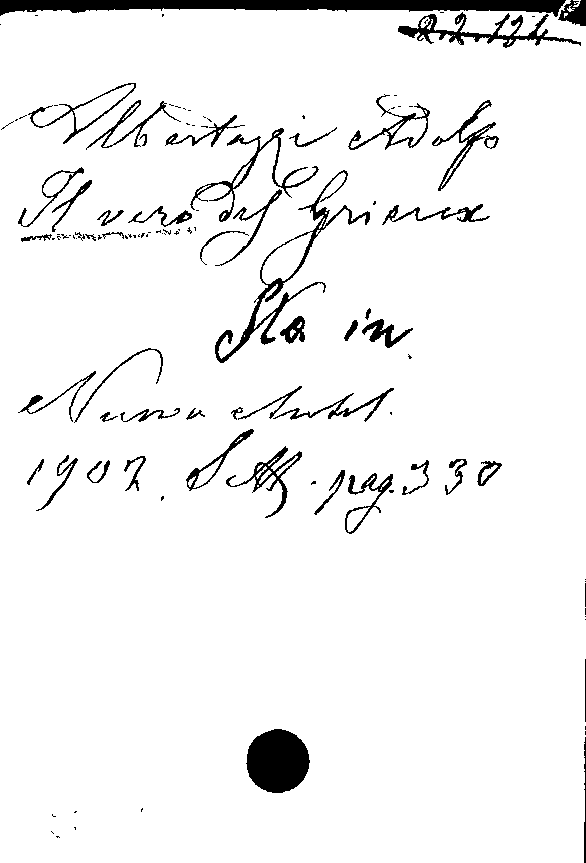 22.134
Albertazzi Adolfo
Il vero des Grieux
Sta in
Nuova Antol.
1907. Sett. pag. 330